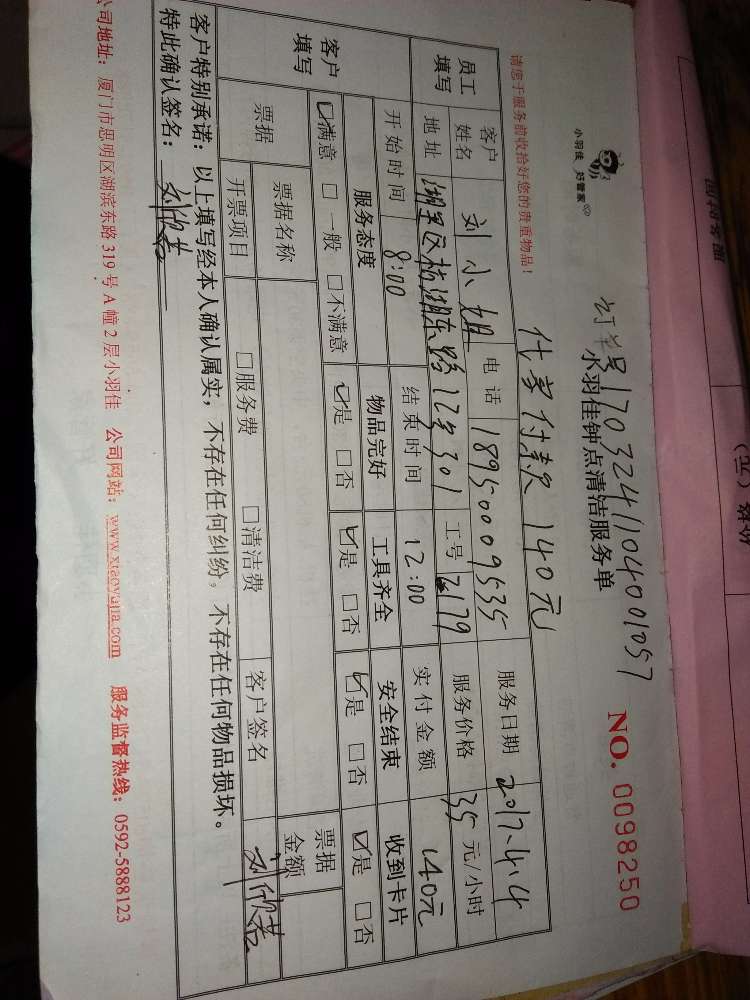 小羽佳 好管家
订单号1703241104001057
小羽佳钟点清洁服务单
NO. 0098250
代卖付款 140元
请您于服务前收拾好您的贵重物品！
员工填写
客户姓名 刘小姐 电话 18950009535 服务日期 2017.4.4
地址 湖里区枋湖东路12号301 工号 2179 服务价格 35元/小时
客户填写
开始时间 8:00 结束时间 12:00 实付金额 140元
服务态度 物品完好 工具齐全 安全结束 收到卡片
☑满意 □一般 □不满意 ☑是 □否 ☑是 □否 ☑是 □否 ☑是 □否
票据 票据名称 票据金额
开票项目 □服务费 □清洁费 客户签名 刘欣若
客户特别承诺：以上填写经本人确认属实，不存在任何纠纷，不存在任何物品损坏。
特此确认签名：刘欣若
公司地址：厦门市思明区湖滨东路319号A幢2层小羽佳 公司网站：www.xiaoyujia.com 服务监督热线：0592-5888123